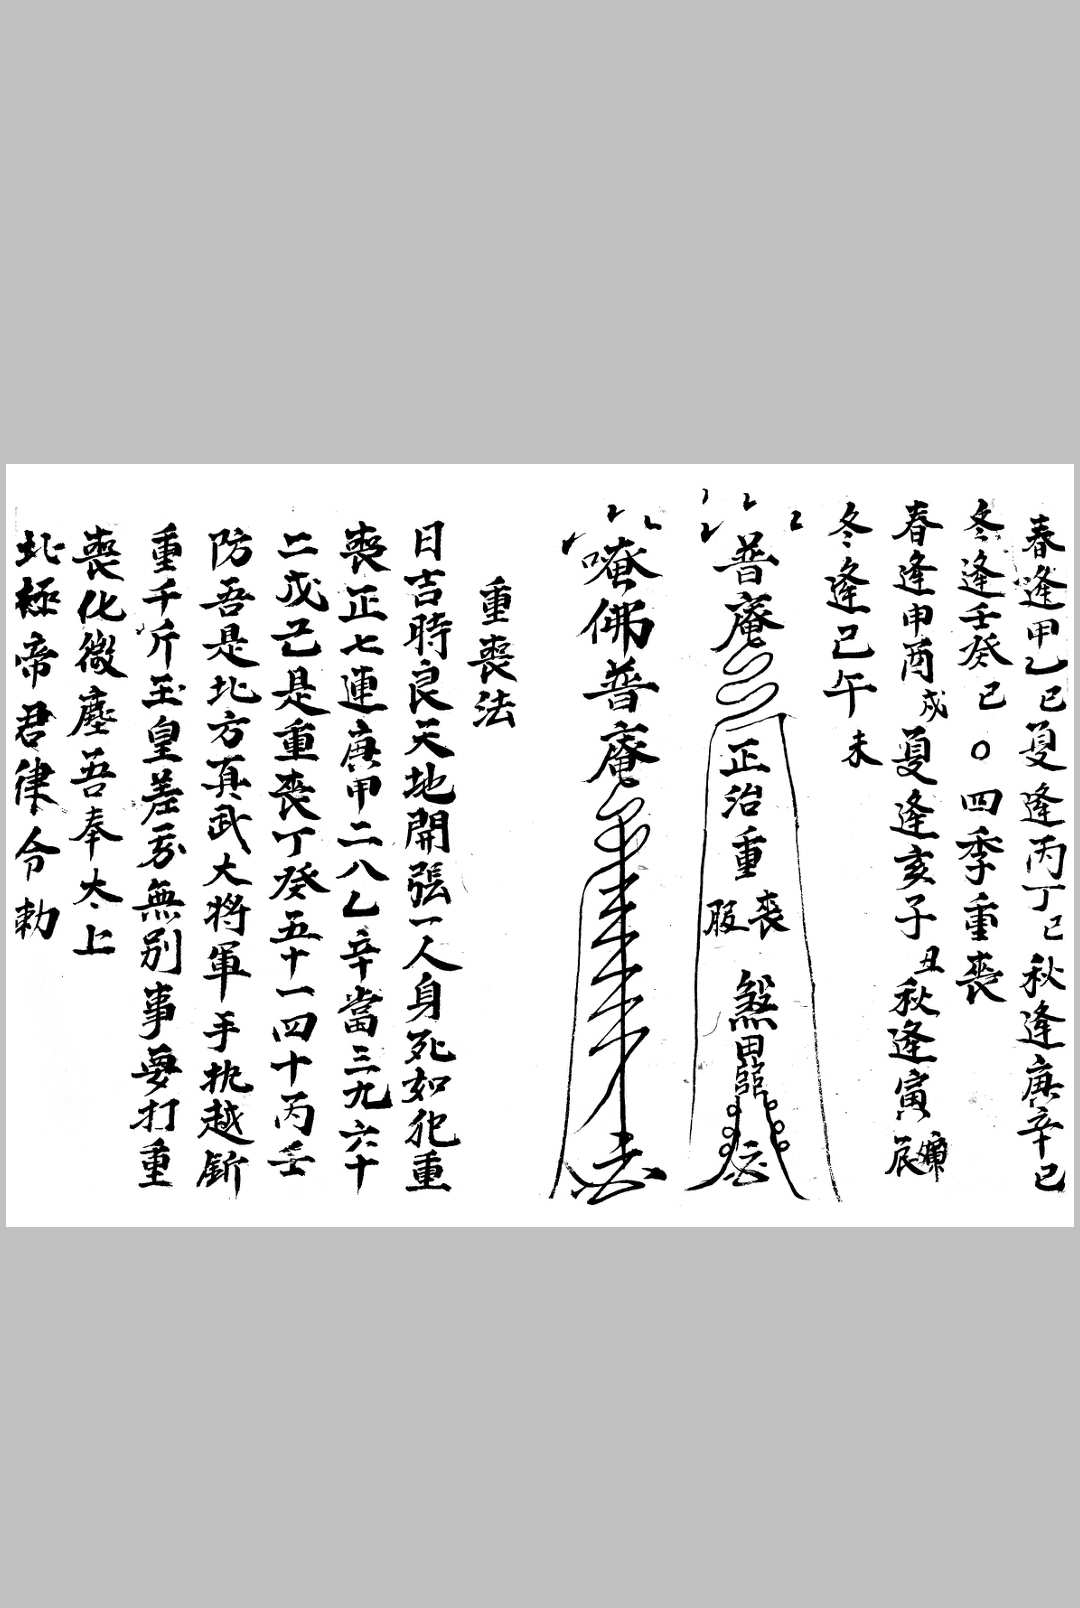 春逢甲乙已夏逢丙丁已秋逢庚辛已
冬逢壬癸已〇四季重喪
春逢申酉戌夏逢亥子丑秋逢寅卯辰
冬逢巳午未
普庵
正治重喪服煞
唵佛普庵
重喪法
日吉時良天地開張一人身死如犯重
喪正七連庚甲二八乙辛當三九六十
二戊己是重喪丁癸五十一四十丙壬
防吾是北方真武大将軍手执越斦
重千斤玉皇差吾無别事要打重
喪化微塵吾奉太上
北極帝君律令勅